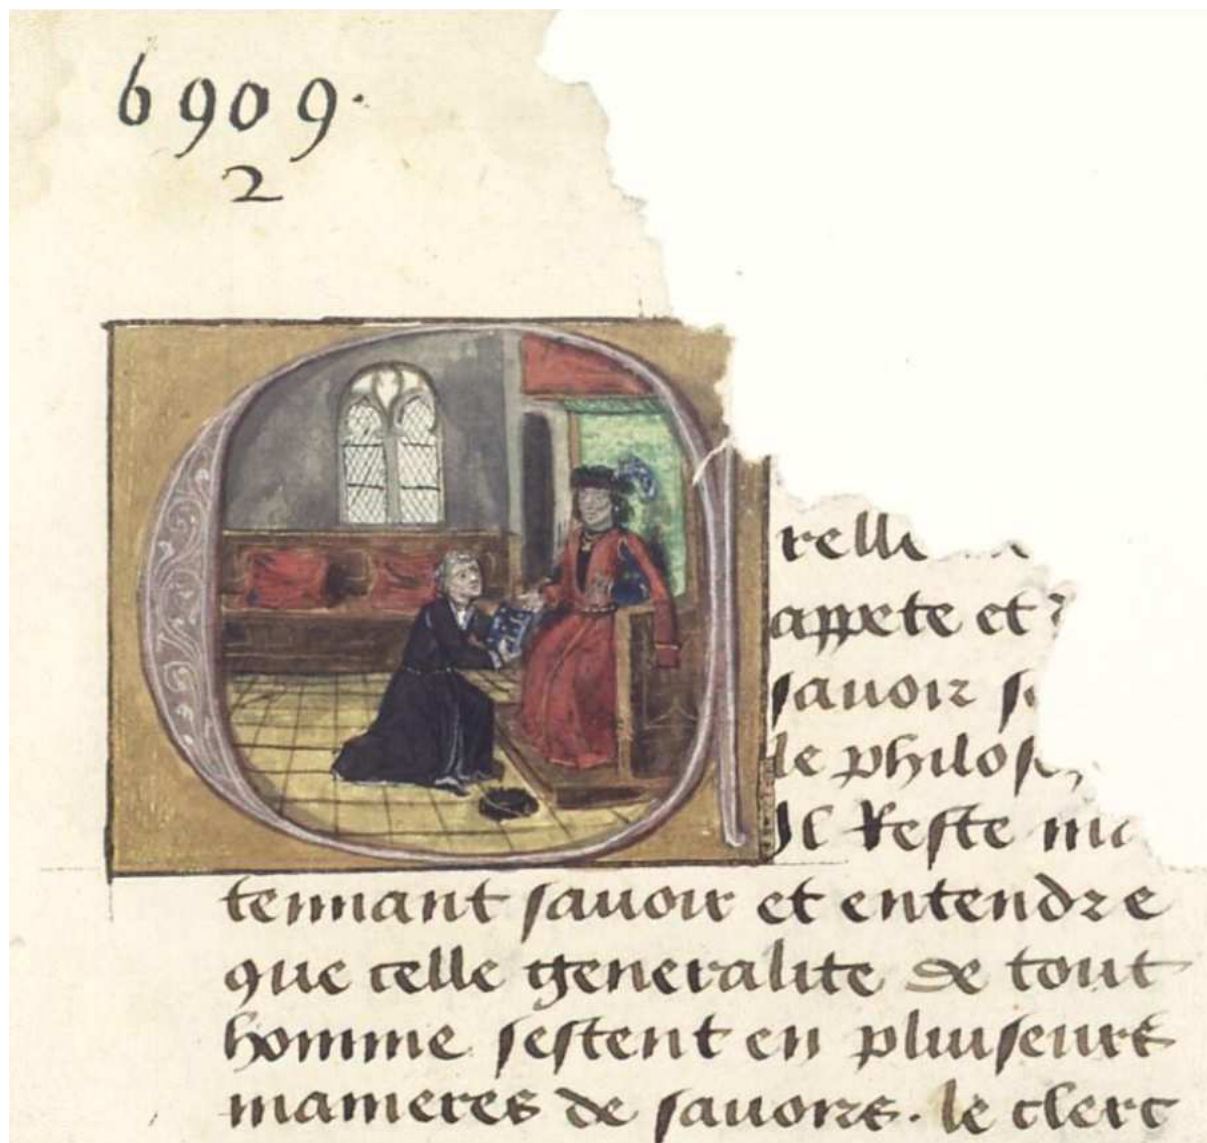 6909.
2
relle
appete et
savoir
de philos
Il Reste ma
tennant savoir et entendre
que celle generalite de tout
homme sestent en pluiseurs
manieres de savoirs. le clerc